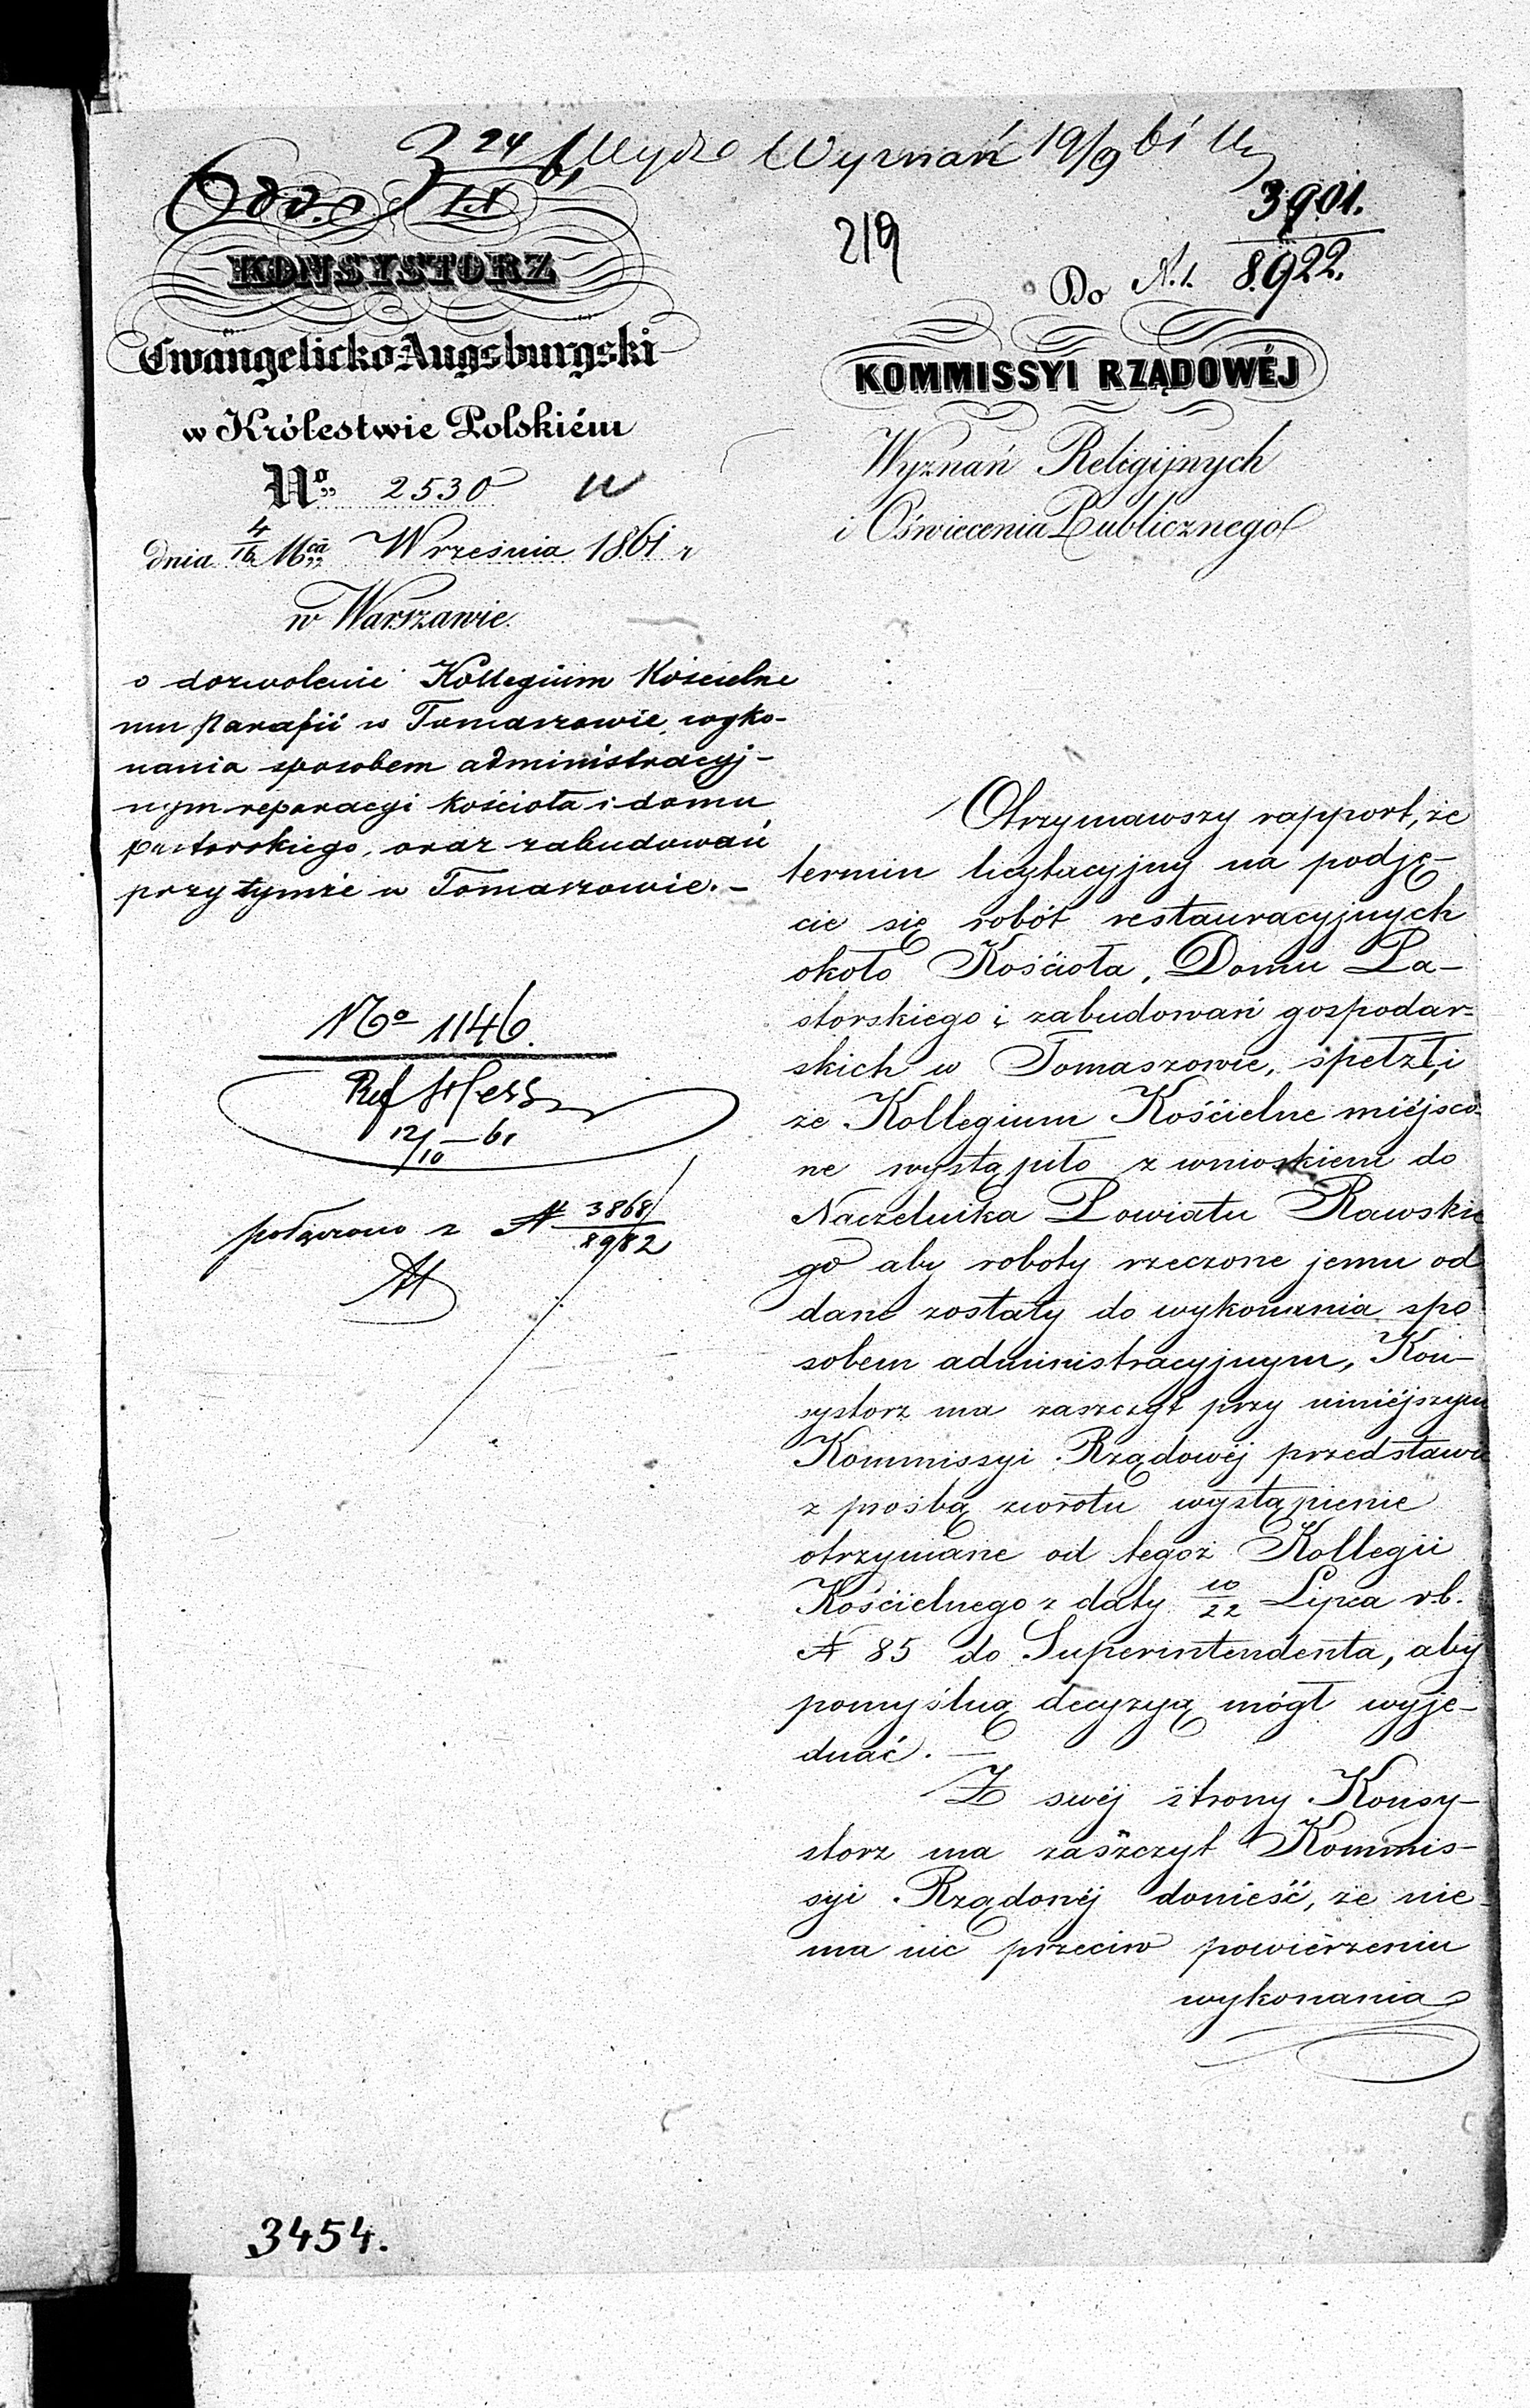 Wydz. Wyznań 19/9 61
24/IX 61
219
3901.
8922.
KONSYSTORZ
Ewangelicko-Augsburgski
w Królestwie Polskiém
No 2530
dnia 4/16 Mca Września 1861 r
w Warszawie.
o dozwolenie Kollegium Kościelne
mu Parafii w Tomaszowie, wyko-
nania sposobem administracyj-
nym reparacyi kościoła i domu
pastorskiego, oraz zabudowań
przy tymże w Tomaszowie. -
No 1146.
Ref Hess
12/10 - 61
połączono z N 3868/8982
3454.
Do N. 1.
KOMMISSYI RZĄDOWÉJ
Wyznań Religijnych
i Oświecenia Publicznego
Otrzymawszy rapport, że
termin licytacyjny na podję-
cie się robót restauracyjnych
około Kościoła, Domu Pa-
storskiego i zabudowań gospodar=
skich w Tomaszowie, spełzł, i
że Kollegium Kościelne miéjsco-
we wystąpiło z wnioskiem do
Naczelnika Powiatu Rawskie
go aby roboty rzeczone jemu od
dane zostały do wykonania spo
sobem administracyjnym, Kon-
systorz ma zaszczyt przy niniéjszym
Kommissyi Rządowéj przedstawić
z prośbą zwrotu wystąpienie
otrzymane od tegoż Kollegii
Kościelnego z daty 10/22 Lipca r.b.
N 85 do Superintendenta, aby
pomyślną decyzyą mógł wyje-
dnać. -
Z swéj strony Konsy-
storz ma zaszczyt Kommis-
syi Rządowéj donieść, że nie-
ma nic przeciw powiérzeniu
wykonania